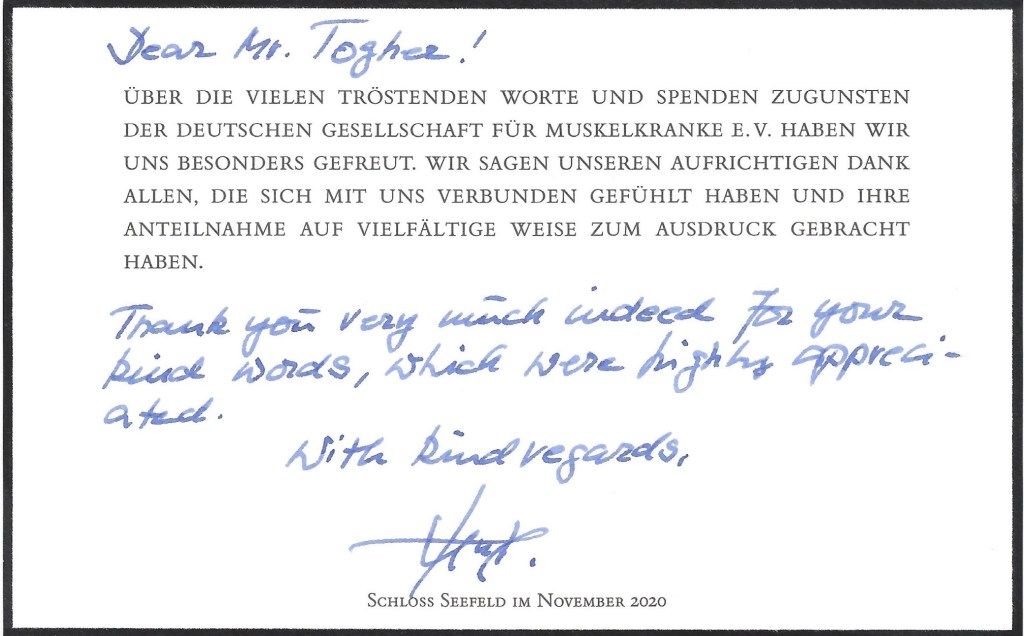 Dear Mr. Togher!
ÜBER DIE VIELEN TRÖSTENDEN WORTE UND SPENDEN ZUGUNSTEN
DER DEUTSCHEN GESELLSCHAFT FÜR MUSKELKRANKE E.V. HABEN WIR
UNS BESONDERS GEFREUT. WIR SAGEN UNSEREN AUFRICHTIGEN DANK
ALLEN, DIE SICH MIT UNS VERBUNDEN GEFÜHLT HABEN UND IHRE
ANTEILNAHME AUF VIELFÄLTIGE WEISE ZUM AUSDRUCK GEBRACHT
HABEN.
Thank you very much indeed for your
kind words, which were highly appreci-
ated.
With kind regards,
SCHLOSS SEEFELD IM NOVEMBER 2020